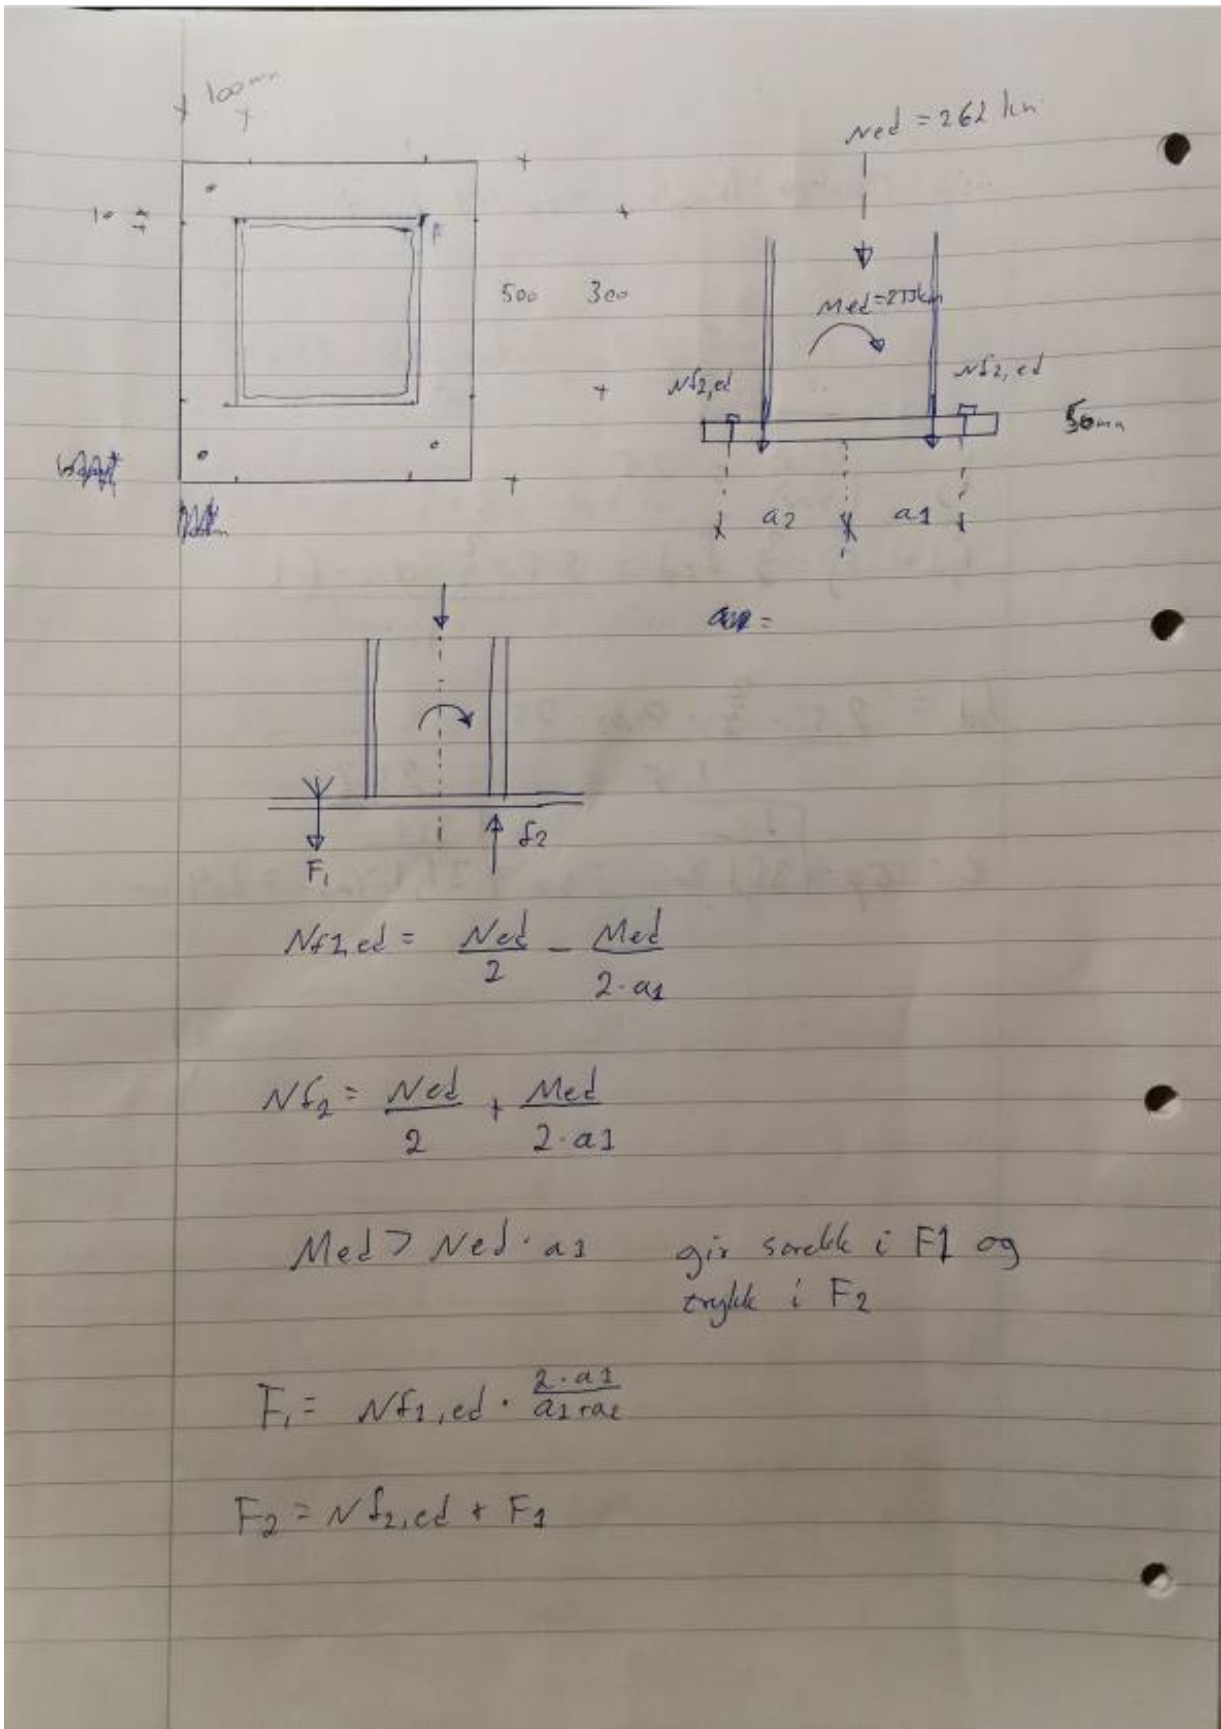 100mm
Ned = 262 kn
10
F
500 300
Med=273km
Nf2,ed
Nf2,ed
50mm
a2 a1
=
F1
f2
Nf1,ed = Ned/2 - Med/2·a1
Nf2 = Ned/2 + Med/2·a1
Med > Ned·a1 gir strekk i F1 og
trykk i F2
F1 = Nf1,ed · 2·a1/a1+a2
F2 = Nf2,ed + F1